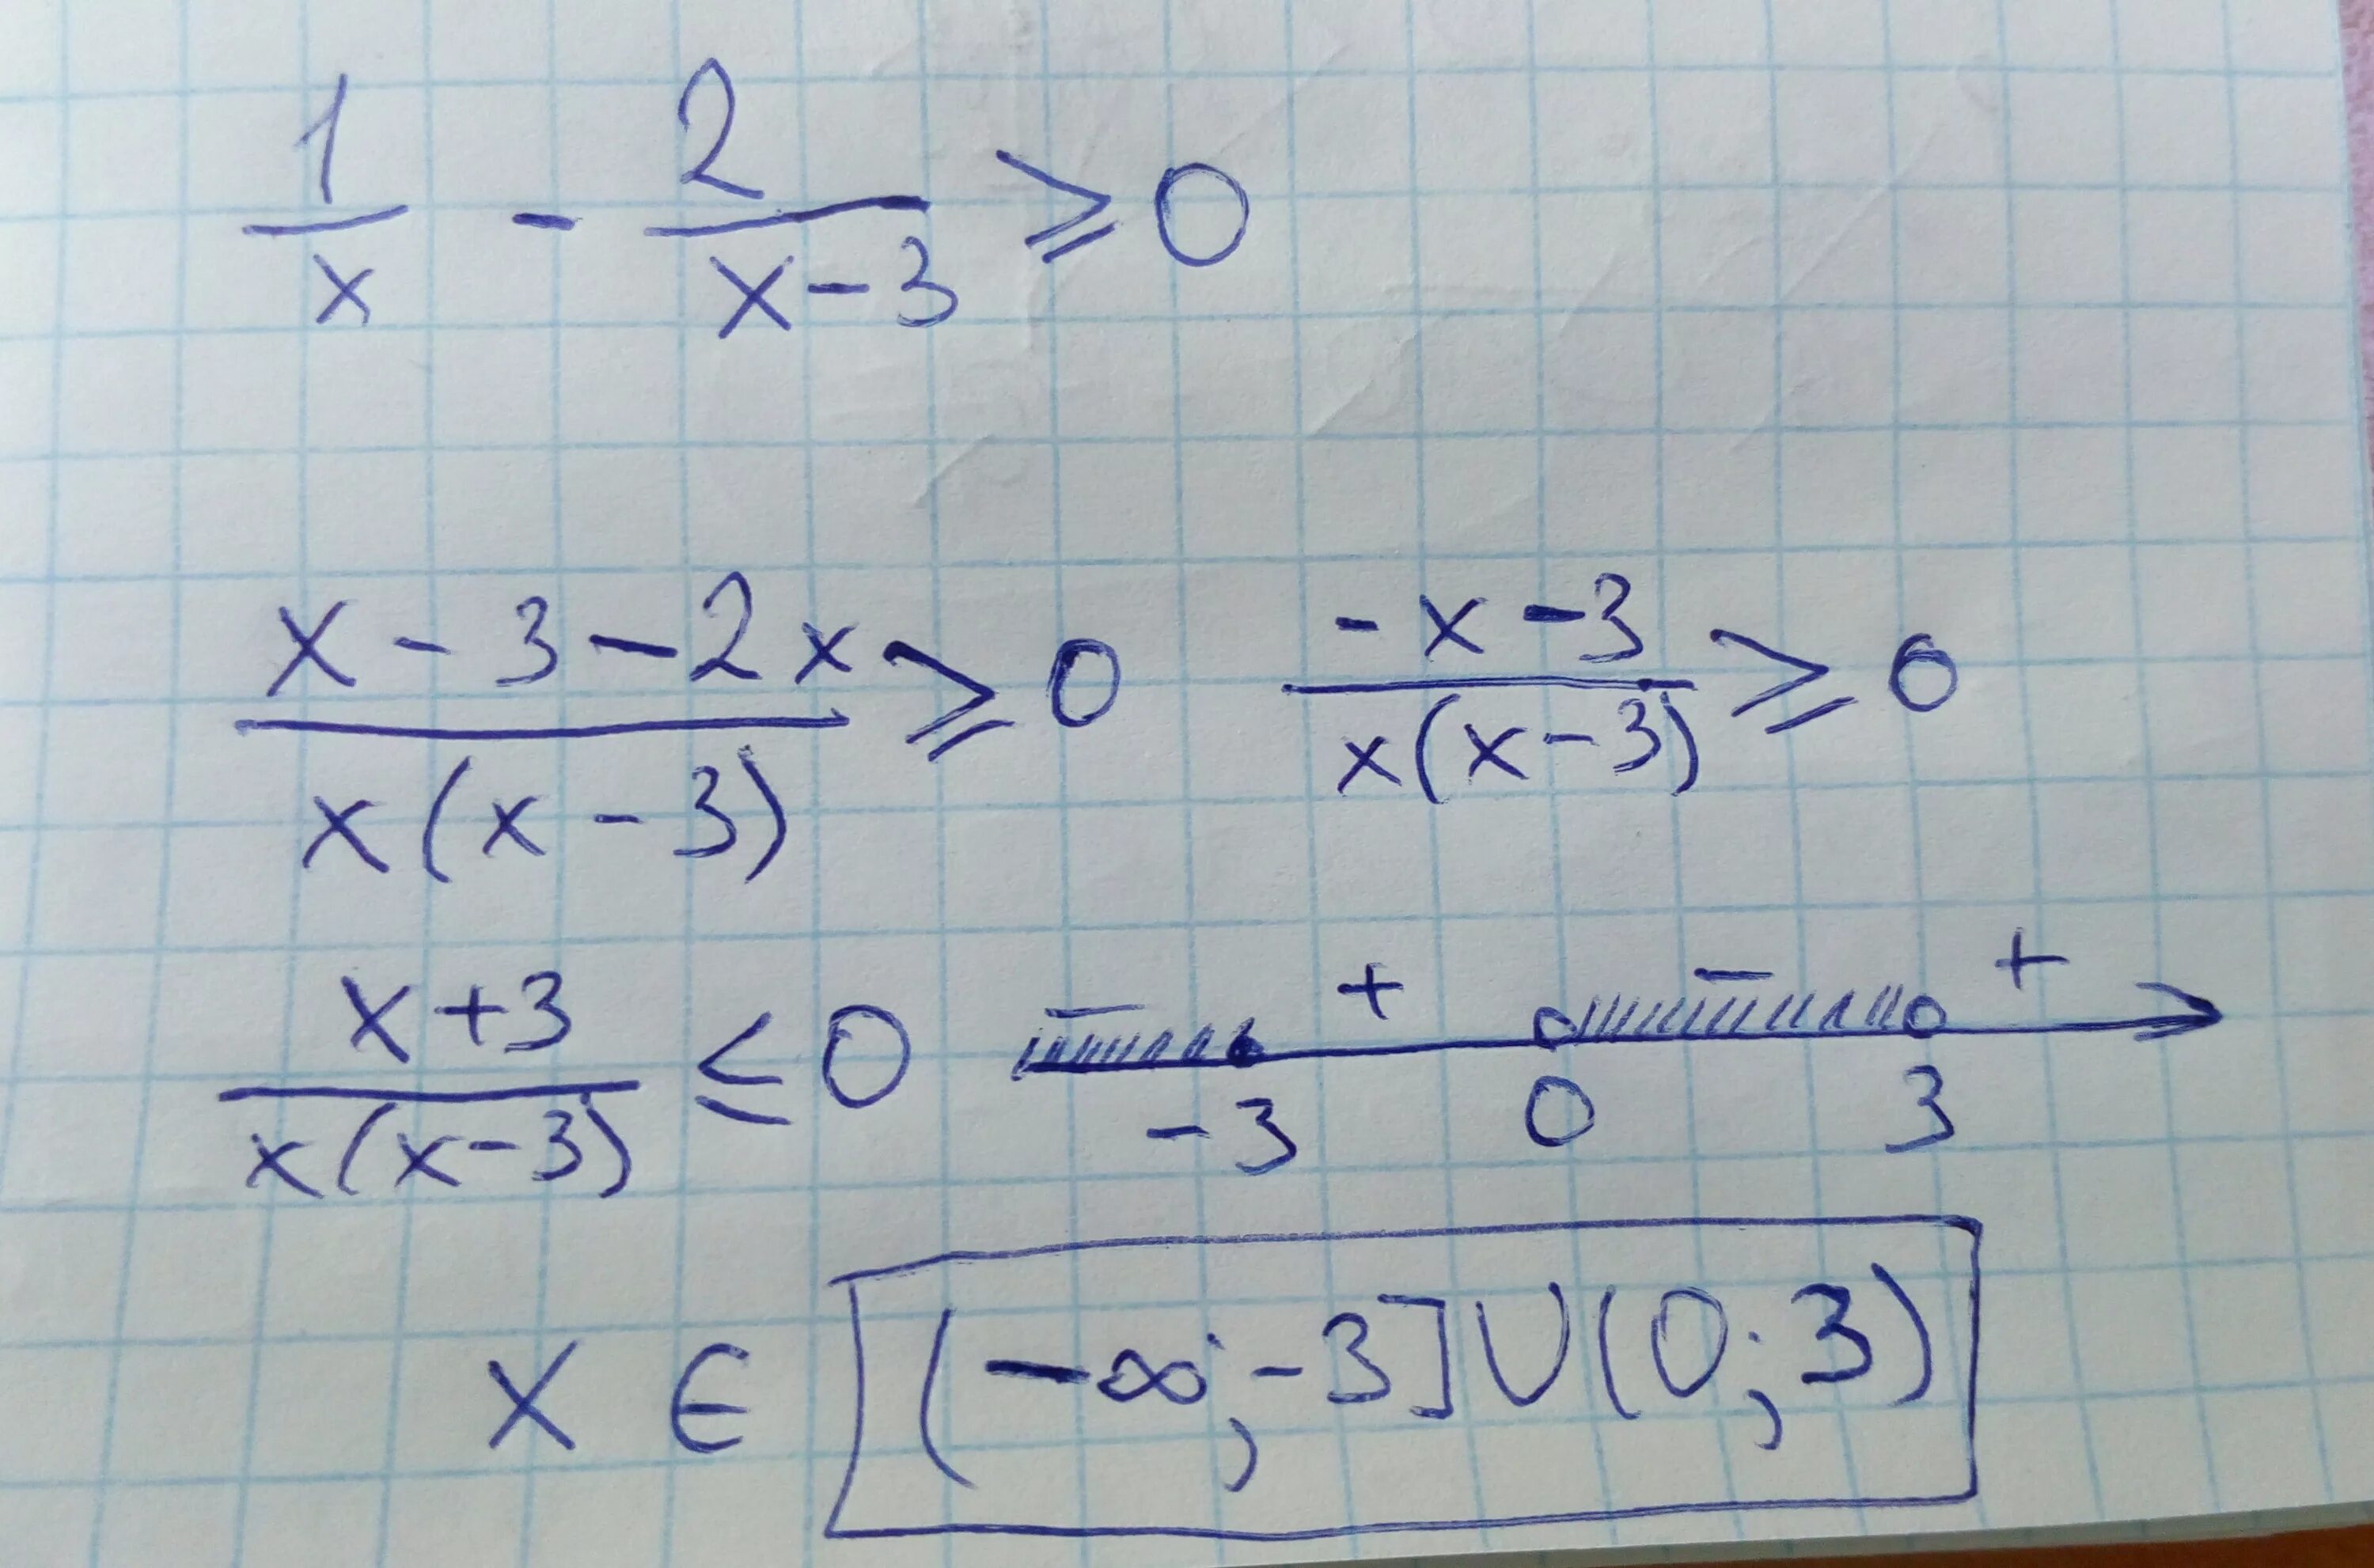 1/x - 2/(x-3) ≥ 0
(x-3-2x)/(x(x-3)) ≥ 0 (-x-3)/(x(x-3)) ≥ 0
(x+3)/(x(x-3)) ≤ 0 - + - +
-3 0 3
x ∈ (-∞;-3]∪(0;3)